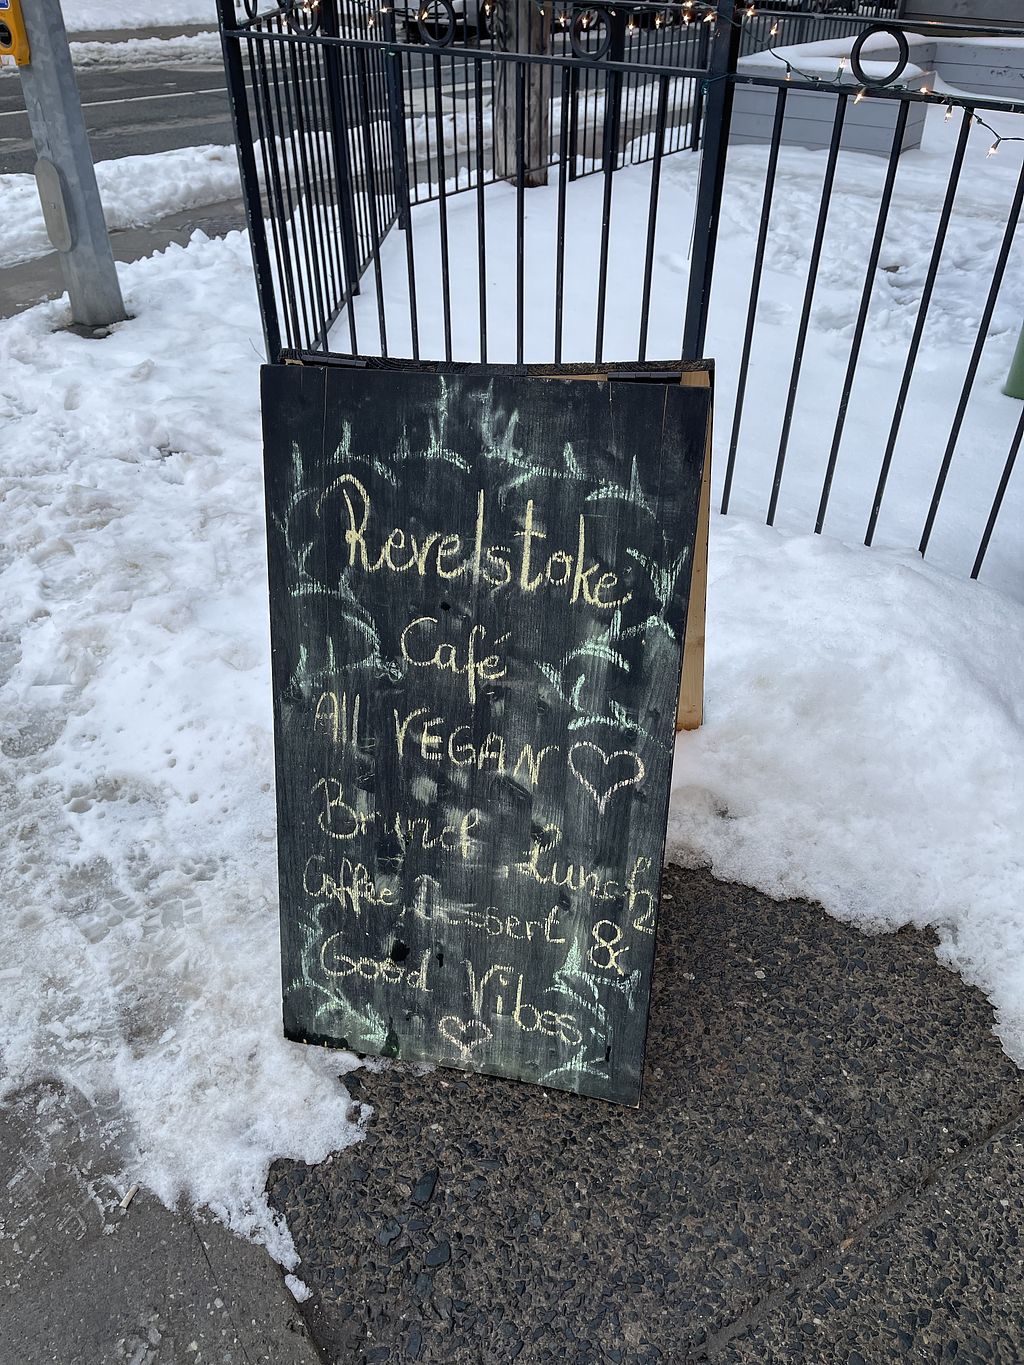 Revelstoke
Café
All VEGAN
Brunch Lunch
Coffee, Dessert &
Good Vibes